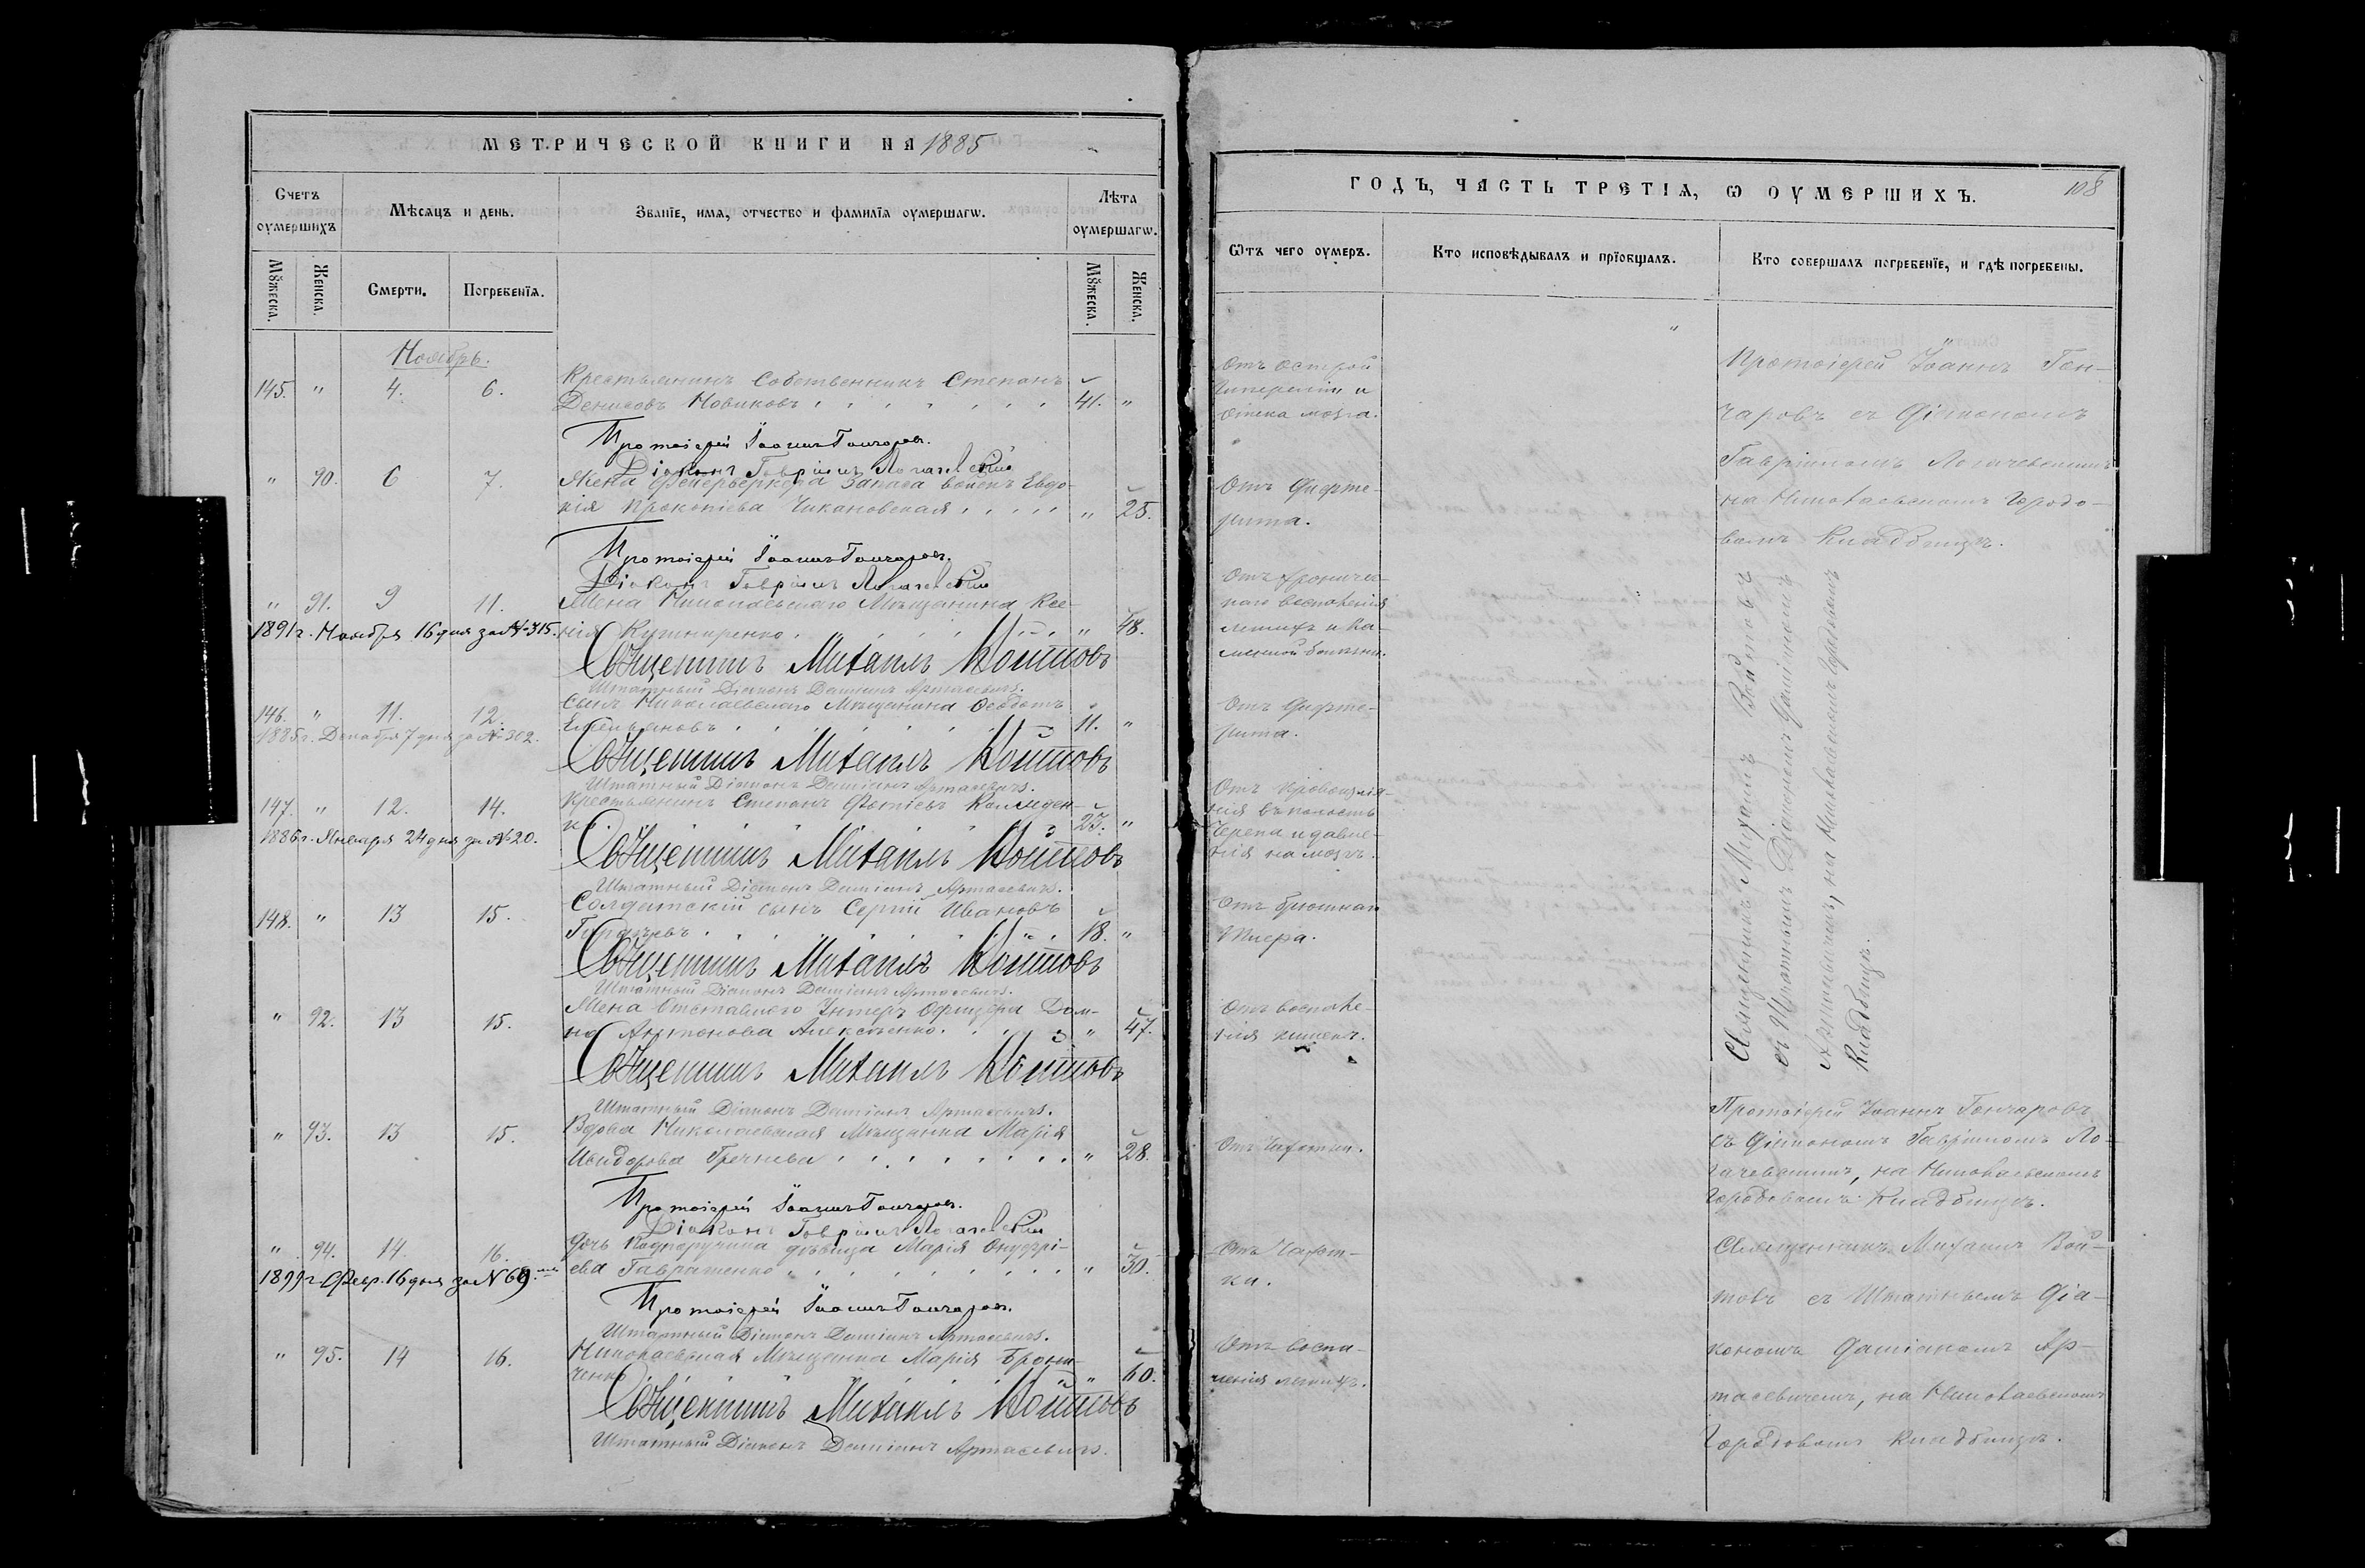 МЕТРИЧЕСКОЙ КНИГИ НА 1885
Счетъ оумершихъ
Мѣсяцъ и день.
Званїе, имя, отчество и фамилїя оумершагѡ.
Лѣта оумершагѡ.
Мꙋжеска. Женска.
Смерти. Погребенїя.
Мꙋжеска. Женска.
Ноябрь.
145. " 4. 6. Крестьянинъ Собственникъ Степанъ
Денисовъ Новиковъ 41. "
Протоіерей Іоаннъ Гончаровъ.
Діаконъ Гавріилъ Логачевскій
" 90. 6 7. Жена Фейерверкера Запаса войскъ Евдо-
кія Прокопіева Чикановская " 25.
Протоіерей Іоаннъ Гончаровъ.
Діаконъ Гавріилъ Логачевскій
" 91. 9 11. Жена Николаевскаго Мѣщанина Ксе-
1891 г. Ноября 16 дня за № 315.
нія Кушниренко " 48.
Священникъ Михаилъ Войтовъ
Штатный Діаконъ Даміанъ Артасевичъ.
146. " 11. 12. Сынъ Николаевскаго Мѣщанина Ѳеодотъ
1885 г. Декабря 7 дня за № 302.
Емельяновъ 11. "
Священникъ Михаилъ Войтовъ
Штатный Діаконъ Даміанъ Артасевичъ.
147. " 12. 14. Крестьянинъ Степанъ Фотіевъ
1886 г. Января 24 дня за № 20.
23. "
Священникъ Михаилъ Войтовъ
Штатный Діаконъ Даміанъ Артасевичъ.
148. " 13 15. Солдатскій сынъ Сергій Ивановъ
18. "
Священникъ Михаилъ Войтовъ
Штатный Діаконъ Даміанъ Артасевичъ.
" 92. 13 15. Жена Отставного Унтеръ Офицера Дом-
на Антонова Алексѣенко. " 47.
Священникъ Михаилъ Войтовъ
Штатный Діаконъ Даміанъ Артасевичъ.
" 93. 13 15. Вдова Николаевская Мѣщанка Марія
Исидорова Гречнева " 28.
Протоіерей Іоаннъ Гончаровъ.
Діаконъ Гавріилъ Логачевскій
" 94. 14. 16. Дочь Подпоручика дѣвица Марія Онуфрі-
1899 г. Февр. 16 дня за № 69.
ева Гавратенко " 30.
Протоіерей Іоаннъ Гончаровъ.
Штатный Діаконъ Даміанъ Артасевичъ.
" 95. 14 16. Николаевская Мѣщанка Марія
" 60.
Священникъ Михаилъ Войтовъ
Штатный Діаконъ Даміанъ Артасевичъ.
ГОДЪ, ЧАСТЬ ТРЕТІЯ, Ѡ ОУМЕРШИХЪ. 108
Ѿтъ чего оумеръ.
Кто исповѣдывалъ и прїобщалъ.
Кто совершалъ погребенїе, и гдѣ погребены.
Отъ острой
гипереміи и
отека мозга.
Отъ Дифте-
рита.
Отъ хроничес-
каго воспаленія
легкихъ и ка-
менной болѣзни.
Отъ Дифте-
рита.
Отъ кровоизлія-
нія въ полость
черепа и давле-
нія на мозгъ.
Отъ брюшнаго
тифа.
Отъ воспале-
нія кишекъ.
Отъ чахотки.
Отъ Чахот-
ки.
Отъ воспа-
ленія легкихъ.
"
Протоіерей Іоаннъ Гон-
чаровъ съ Діакономъ
Гавріиломъ Логачевскимъ
на Николаевскомъ Городо-
вомъ Кладбищѣ.
Священникъ Михаилъ Войтовъ
съ Штатнымъ Діакономъ Даміаномъ
Артасевичемъ, на Николаевскомъ Городовомъ
Кладбищѣ.
Протоіерей Іоаннъ Гончаровъ
съ Діакономъ Гавріиломъ Ло-
гачевскимъ, на Николаевскомъ
Городовомъ Кладбищѣ.
Священникъ Михаилъ Вой-
товъ съ Штатнымъ Діа-
кономъ Даміаномъ Ар-
тасевичемъ, на Николаевскомъ
Городовомъ Кладбищѣ.